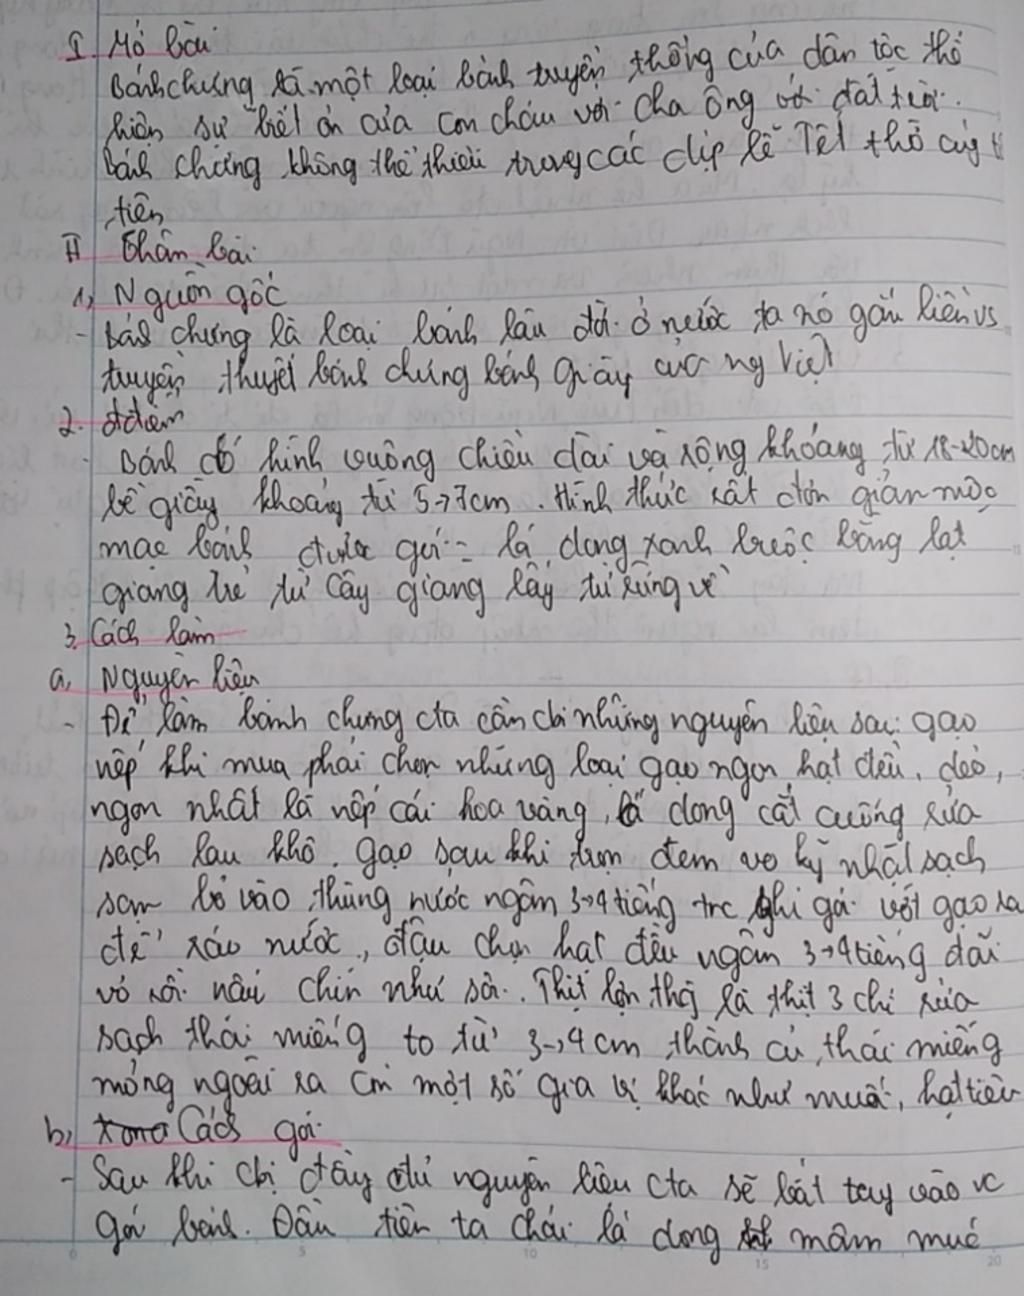 I Mở bài
Bánh chưng là một loại bánh truyền thống của dân tộc thể
hiện sự biết ơn của con cháu với cha ông với đất trời.
Bánh chưng không thể thiếu trong các dịp lễ Tết thờ cúng
tiên
II Thân bài
1, Nguồn gốc
- Bánh chưng là loại bánh lâu đời ở nước ta nó gắn liền vs
truyền thuyết bánh chưng bánh giầy của ng Việt
2. đđiểm
- Bánh có hình vuông chiều dài và rộng khoảng từ 18-20cm
bề giầy khoảng từ 5→7cm. Hình thức rất đơn giản mộc
mạc bánh được gói = lá dong xanh buộc bằng lạt
giang trẻ từ cây giang lấy từ rừng về
3. Cách làm
a, Nguyên liệu
- Để làm bánh chưng cta cần cbi những nguyên liệu sau: gạo
nếp khi mua phải chọn những loại gạo ngon hạt đều, dẻo,
ngon nhất là nếp cái hoa vàng, lá dong cắt cuống rửa
sạch lau khô. gạo sau khi trọn đem vo kỹ nhặt sạch
sạn bỏ vào thùng nước ngâm 3→4 tiếng trc khi gói vớt gạo ra
để ráo nước, đậu chọn hạt đều ngâm 3→4 tiếng đãi
vỏ rồi nấu chín như sôi. Thịt lợn thg là thịt 3 chỉ rửa
sạch thái miếng to từ 3→4 cm, hành củ thái miếng
mỏng ngoài ra còn một số gia vị khác như muối, hạt tiêu
b, Cách gói
- Sau khi cbị đầy đủ nguyên liệu cta sẽ bắt tay vào vc
gói bánh. Đầu tiên ta chải lá dong mâm muc